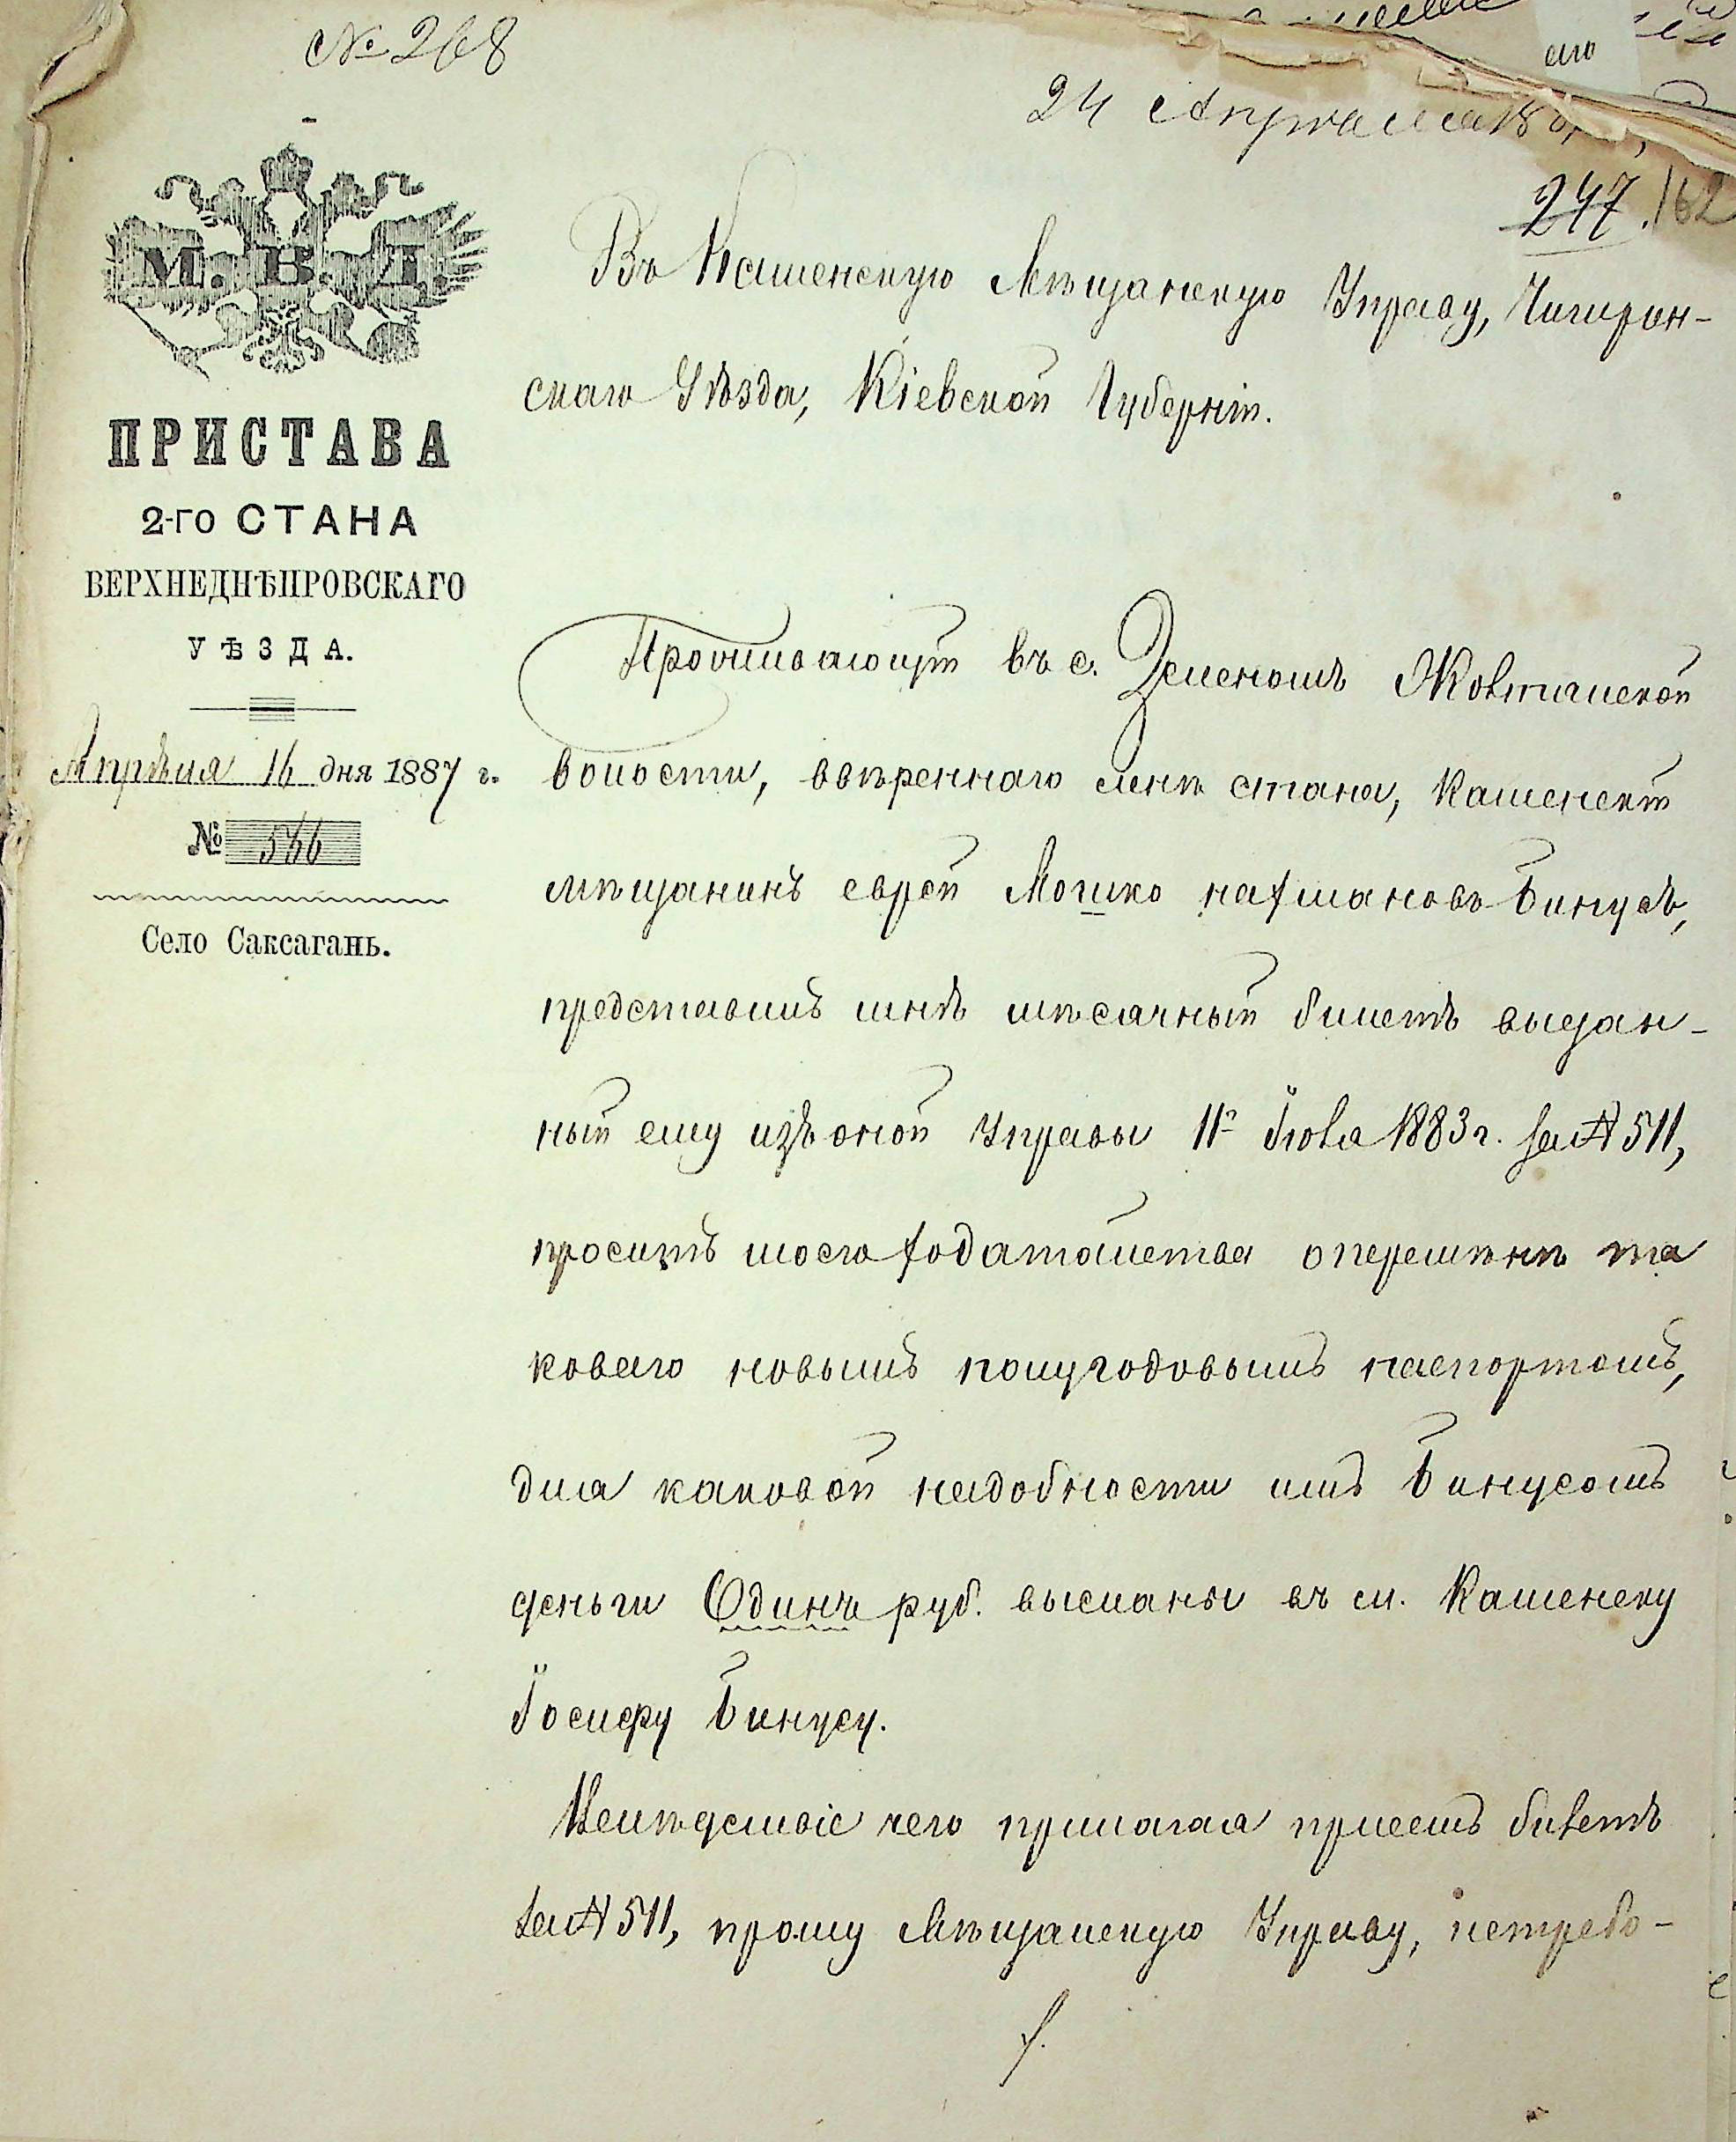 № 268
24 Апрѣля 188
247. 162
М. В. Д.
ПРИСТАВА
2-ГО СТАНА
ВЕРХНЕДНѢПРОВСКАГО
УѢЗДА.
Апрѣля 16 дня 1887 г.
№ 566
Село Саксагань.
Въ Каменскую Мѣщанскую Управу, Чигирин-
скаго Уѣзда, Кіевской Губерніи.
Проживающій въ с. Зеленомъ Жовтянской
волости, ввѣреннаго мнѣ стана, Каменскій
мѣщанинъ еврей Мошко Нахмановъ Бинусъ,
представилъ мнѣ мѣсячный билетъ выдан-
ный ему изъ оной Управы 11го Іюля 1883 г. за № 511,
проситъ моего ходатайства о перемѣнѣ та
коваго новымъ полугодовымъ паспортомъ,
для каковой надобности имъ Бинусомъ
деньги Одинъ руб. высланы въ м. Каменку
Іосифу Бинусу.
Вслѣдствіе чего прилагая присемъ билетъ
за № 511, прошу Мѣщанскую Управу, истребо-